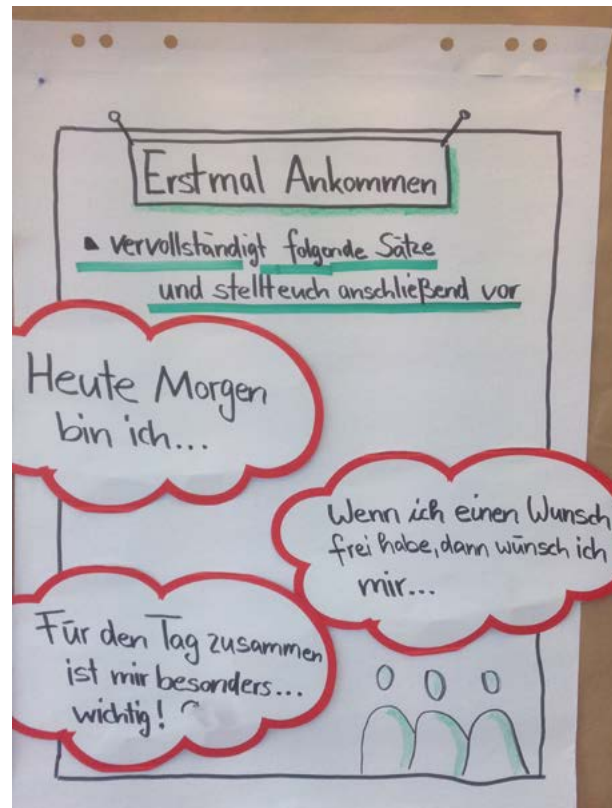 Erstmal Ankommen
vervollständigt folgende Sätze
und stellt euch anschließend vor
Heute Morgen
bin ich...
Wenn ich einen Wunsch
frei habe, dann wünsch ich
mir...
Für den Tag zusammen
ist mir besonders...
wichtig!